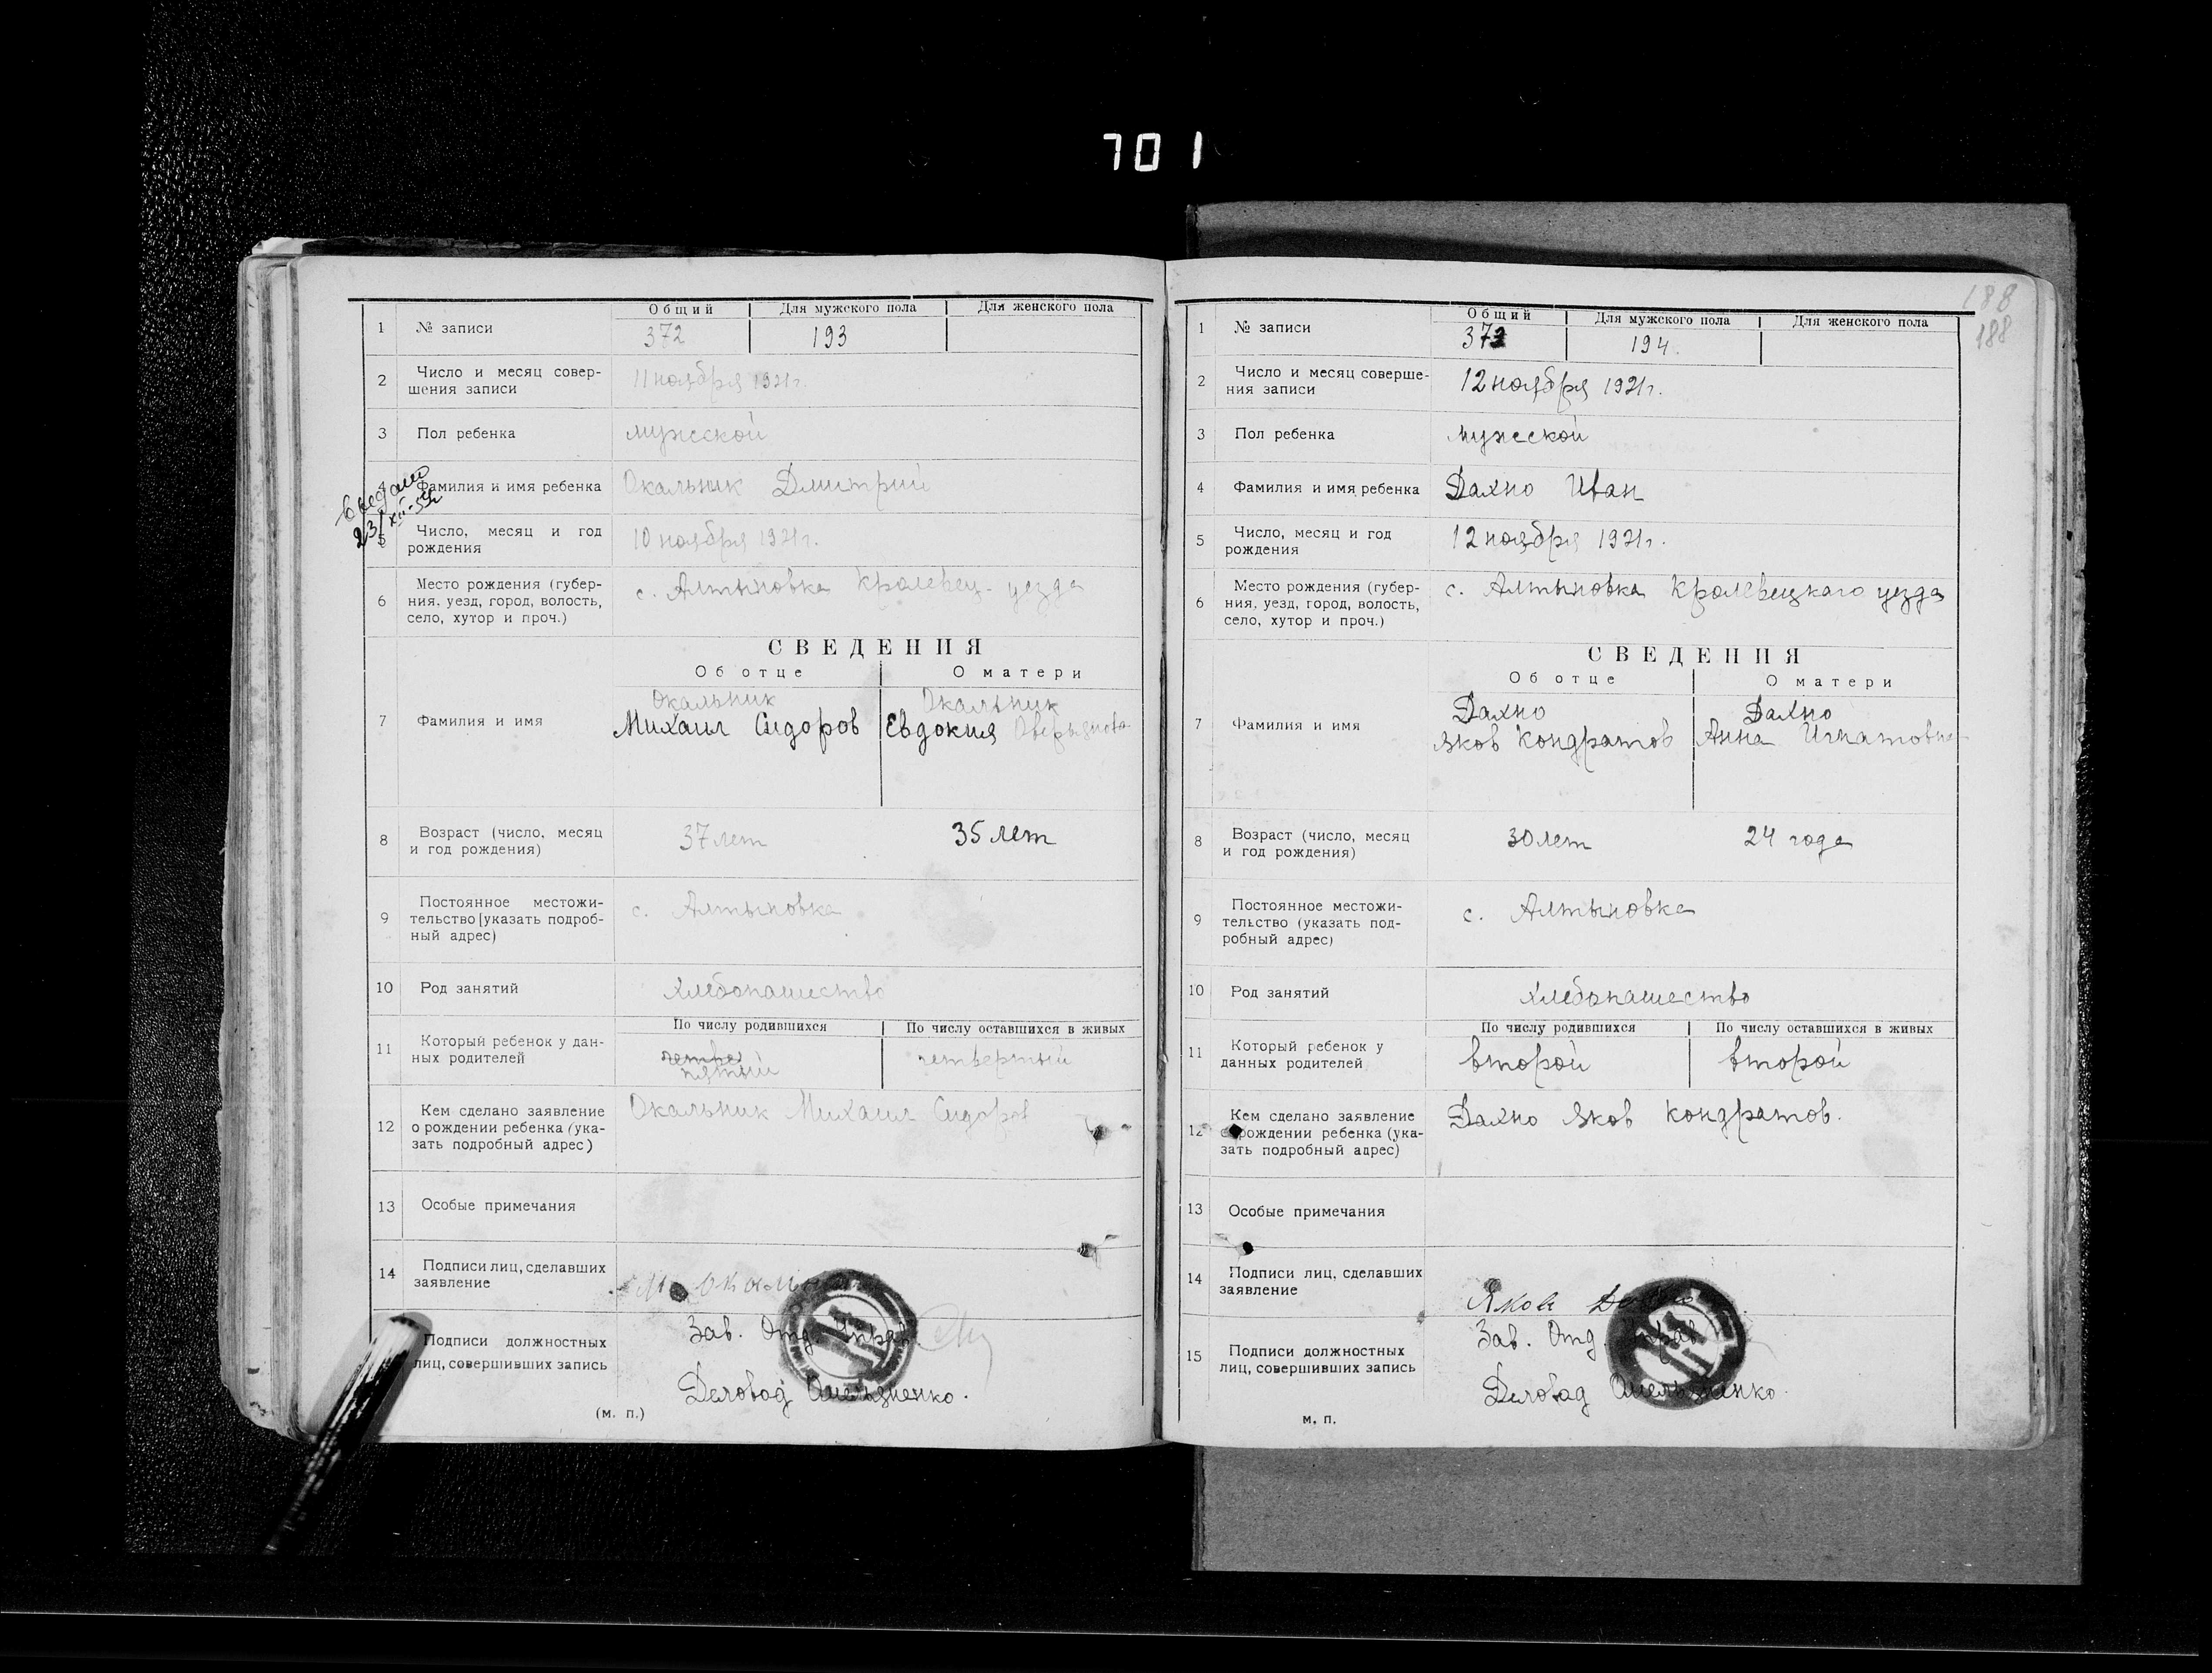 701
Общий Для мужского пола Для женского пола
1 № записи 372 193
2 Число и месяц совер-
шения записи
11 ноября 1921 г.
3 Пол ребенка мужеской
4 Фамилия и имя ребенка Окальник Дмитрий
23/XII-
5 Число, месяц и год
рождения
10 ноября 1921 г.
6 Место рождения (губер-
ния, уезд, город, волость,
село, хутор и проч.)
с. Алтыновка Кролевец. уезда
СВЕДЕНИЯ
Об отце О матери
7 Фамилия и имя
Окальник Окальник
Михаил Сидоров Евдокия Аверьянова
8 Возраст (число, месяц
и год рождения)
37 лет 35 лет
9 Постоянное местожи-
тельство (указать подроб-
ный адрес)
с. Алтыновка
10 Род занятий хлебопашество
По числу родившихся По числу оставшихся в живых
11 Который ребенок у дан-
ных родителей
пятый четвертый
12 Кем сделано заявление
о рождении ребенка (ука-
зать подробный адрес)
Окальник Михаил Сидоров
13 Особые примечания
14 Подписи лиц, сделавших
заявление
Подписи должностных
лиц, совершивших запись
Зав. Отд. Управ
Деловод Омельяненко.
(м. п.)
188
188
Общий Для мужского пола Для женского пола
1 № записи 373 194.
2 Число и месяц соверше-
ния записи
12 ноября 1921 г.
3 Пол ребенка мужеской
4 Фамилия и имя ребенка Дахно Иван
5 Число, месяц и год
рождения
12 ноября 1921 г.
6 Место рождения (губер-
ния, уезд, город, волость,
село, хутор и проч.)
с. Алтыновка Кролевецкаго уезда
СВЕДЕНИЯ
Об отце О матери
7 Фамилия и имя
Дахно Дахно
Яков Кондратов Анна Игнатовна
8 Возраст (число, месяц
и год рождения)
30 лет 24 года
9 Постоянное местожи-
тельство (указать под-
робный адрес)
с. Алтыновка
10 Род занятий хлебопашество
По числу родившихся По числу оставшихся в живых
11 Который ребенок у
данных родителей
второй второй
12 Кем сделано заявление
о рождении ребенка (ука-
зать подробный адрес)
Дахно Яков Кондратов.
13 Особые примечания
14 Подписи лиц, сделавших
заявление
Яков Дахно
15 Подписи должностных
лиц, совершивших запись
Зав. Отд. Управ
Деловод Омельяненко.
м. п.